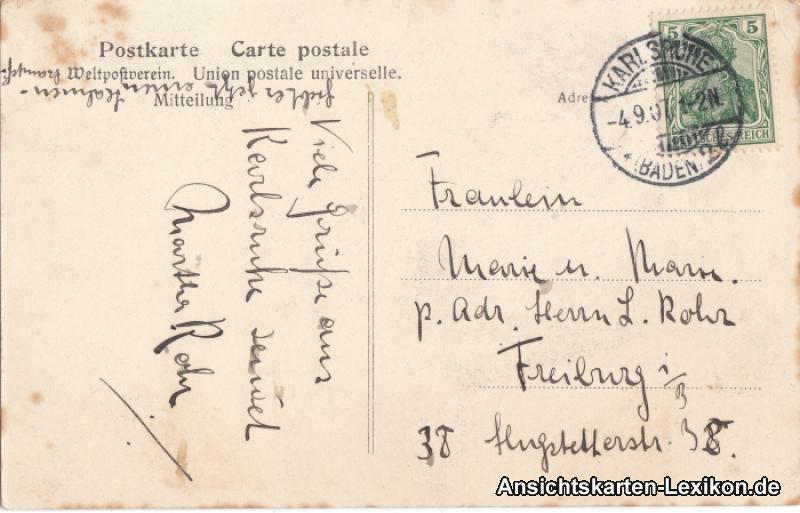 Postkarte Carte postale
Weltpostverein. Union postale universelle.
Mitteilung
Adre
Viele Grüße aus
Karlsruhe sendet
Martha Rohr
5 5
REICH
KARLSRUHE
-4.9.07. 1-2N.
(BADEN)
Fraulein
Marie u. Marn.
p. Adr. Herrn L. Rohr
Freiburg i/B
38 Hugstetterstr. 38.
Ansichtskarten-Lexikon.de